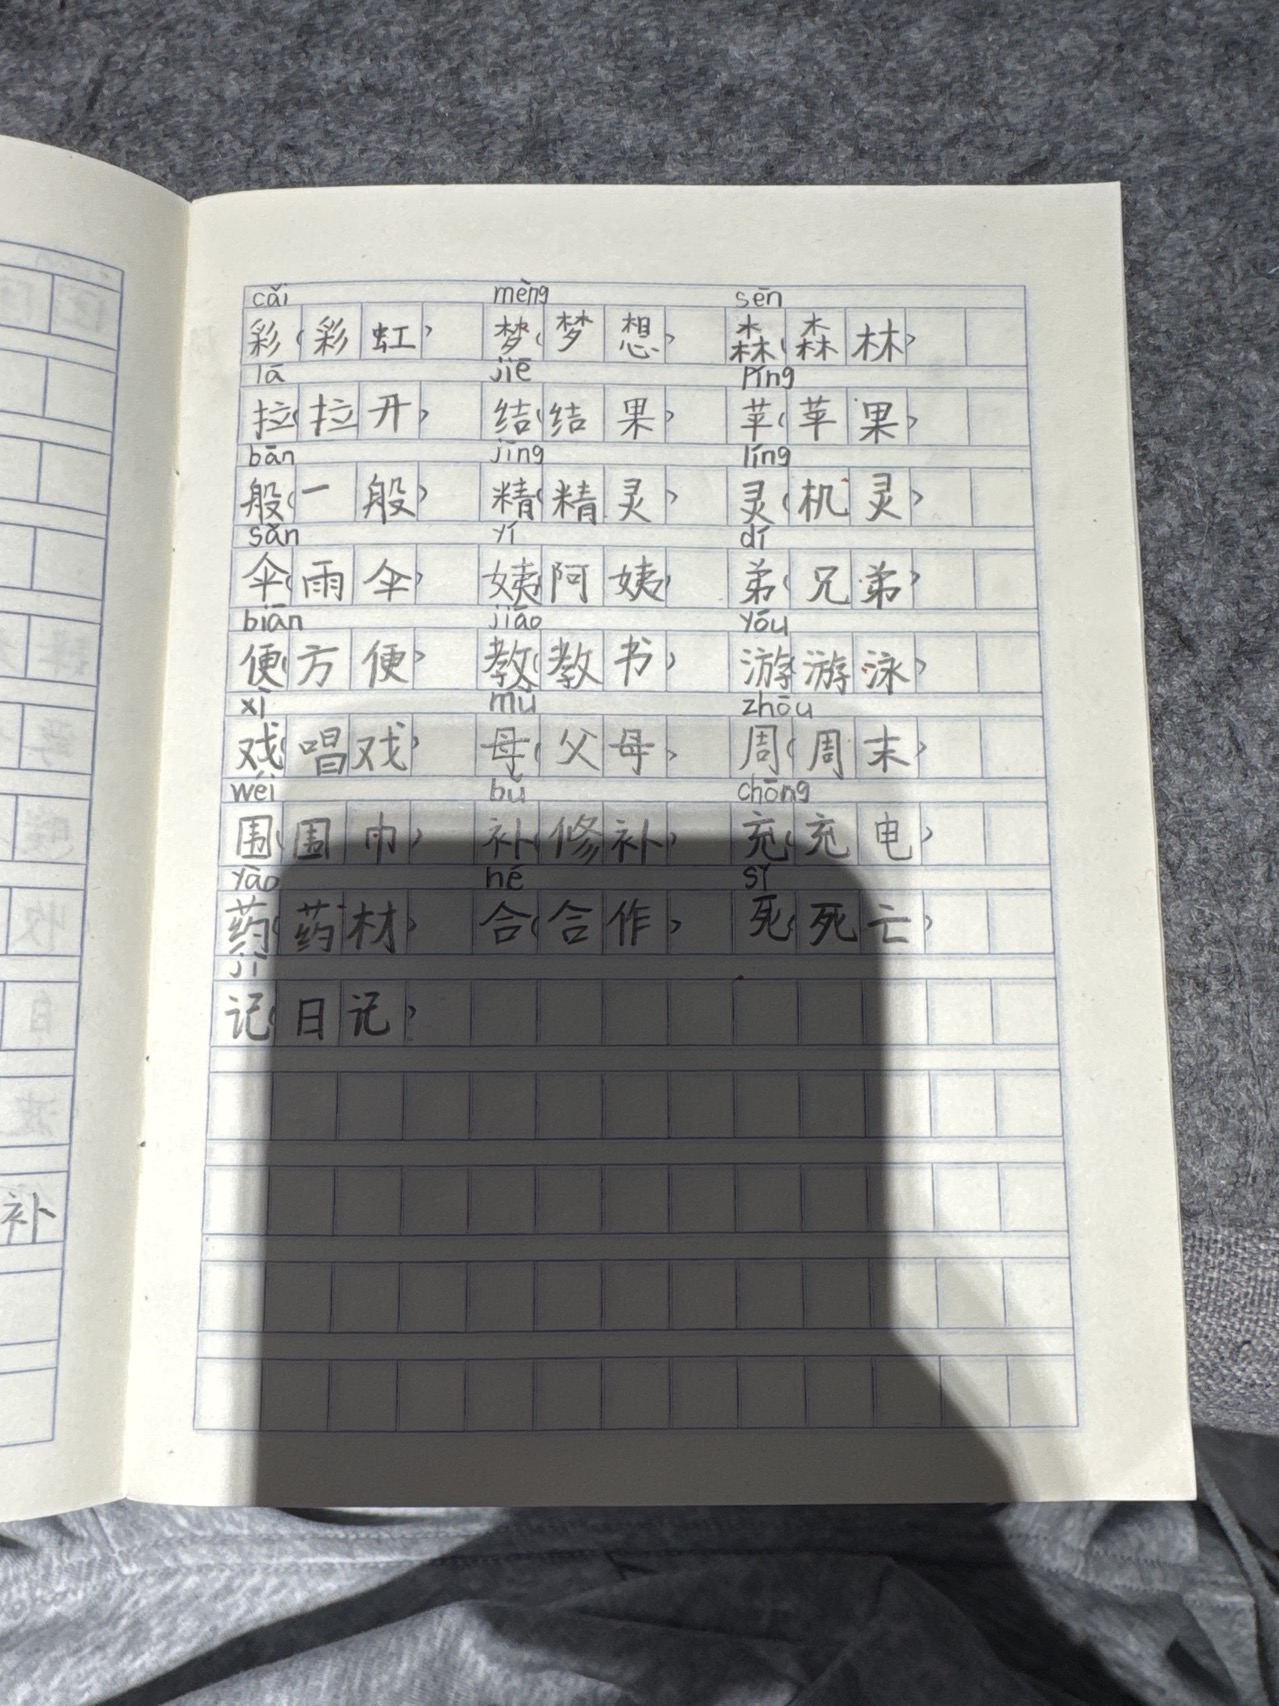 cǎi mèng sēn
彩(彩虹) 梦(梦想) 森(森林)
lā jiē píng
拉(拉开) 结(结果) 苹(苹果)
bān jīng líng
般(一般) 精(精灵) 灵(机灵)
sǎn yí dí
伞(雨伞) 姨(阿姨) 弟(兄弟)
biān jiāo yóu
便(方便) 教(教书) 游(游泳)
xì mǔ zhōu
戏(唱戏) 母(父母) 周(周末)
wéi bǔ chōng
围(围巾) 补(修补) 充(充电)
yào hé sǐ
药(药材) 合(合作) 死(死亡)
jì
记(日记)
补